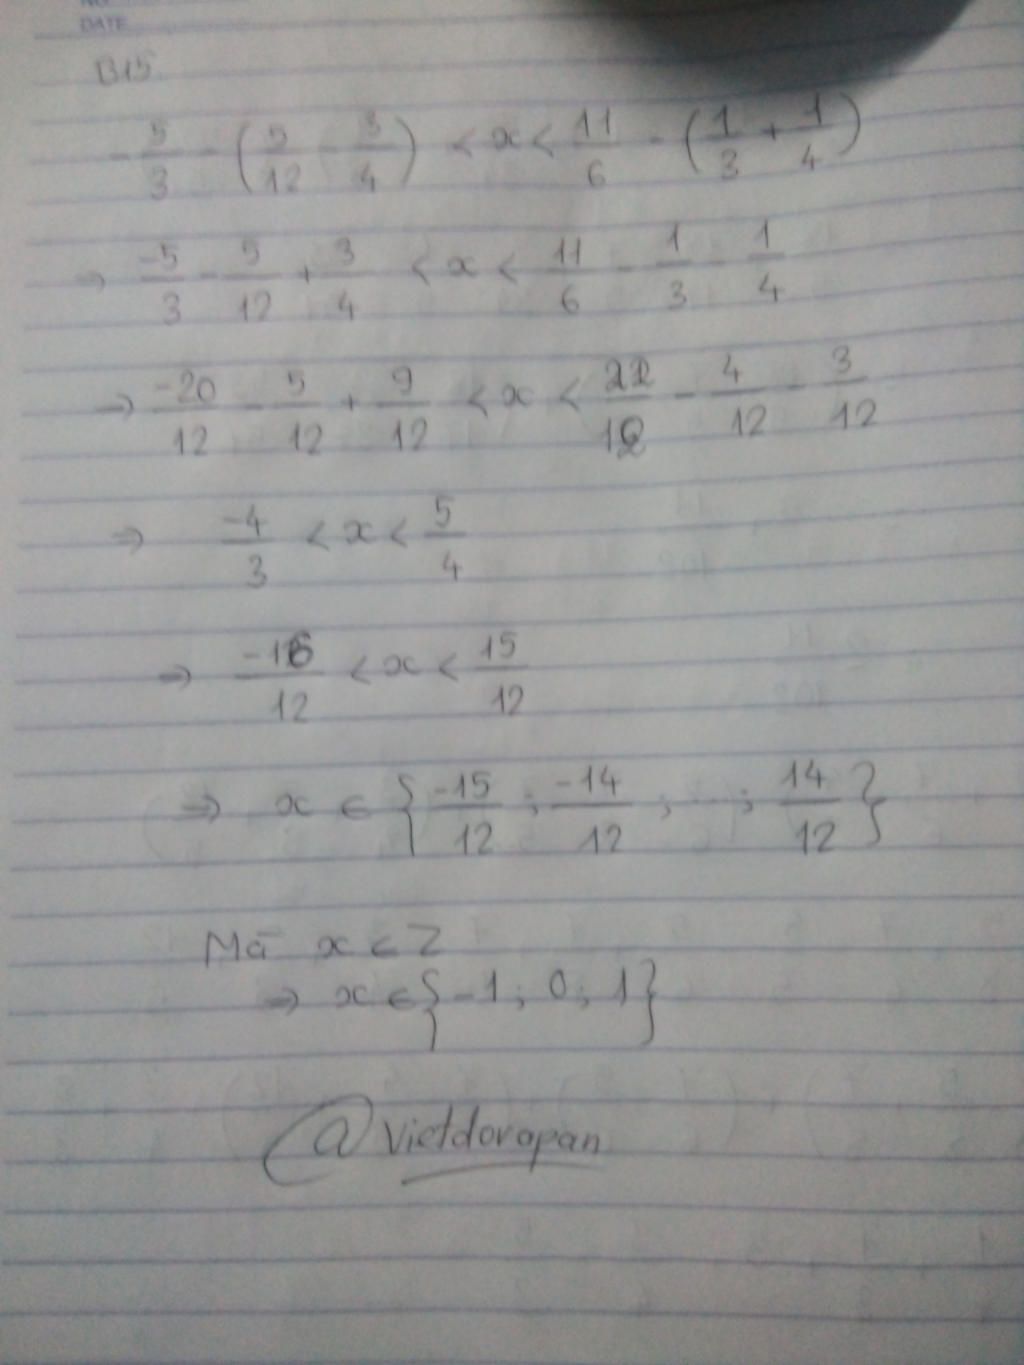 DATE
B15
- 5/3 - (5/12 - 3/4) < x < 11/6 - (1/3 + 1/4)
→ -5/3 - 5/12 + 3/4 < x < 11/6 - 1/3 - 1/4
→ -20/12 - 5/12 + 9/12 < x < 22/12 - 4/12 - 3/12
⇒ -4/3 < x < 5/4
⇒ -16/12 < x < 15/12
⇒ x ∈ {-15/12 ; -14/12 ; ... ; 14/12}
Mà x ∈ Z
⇒ x ∈ {-1 ; 0 ; 1}
@vietdorapan